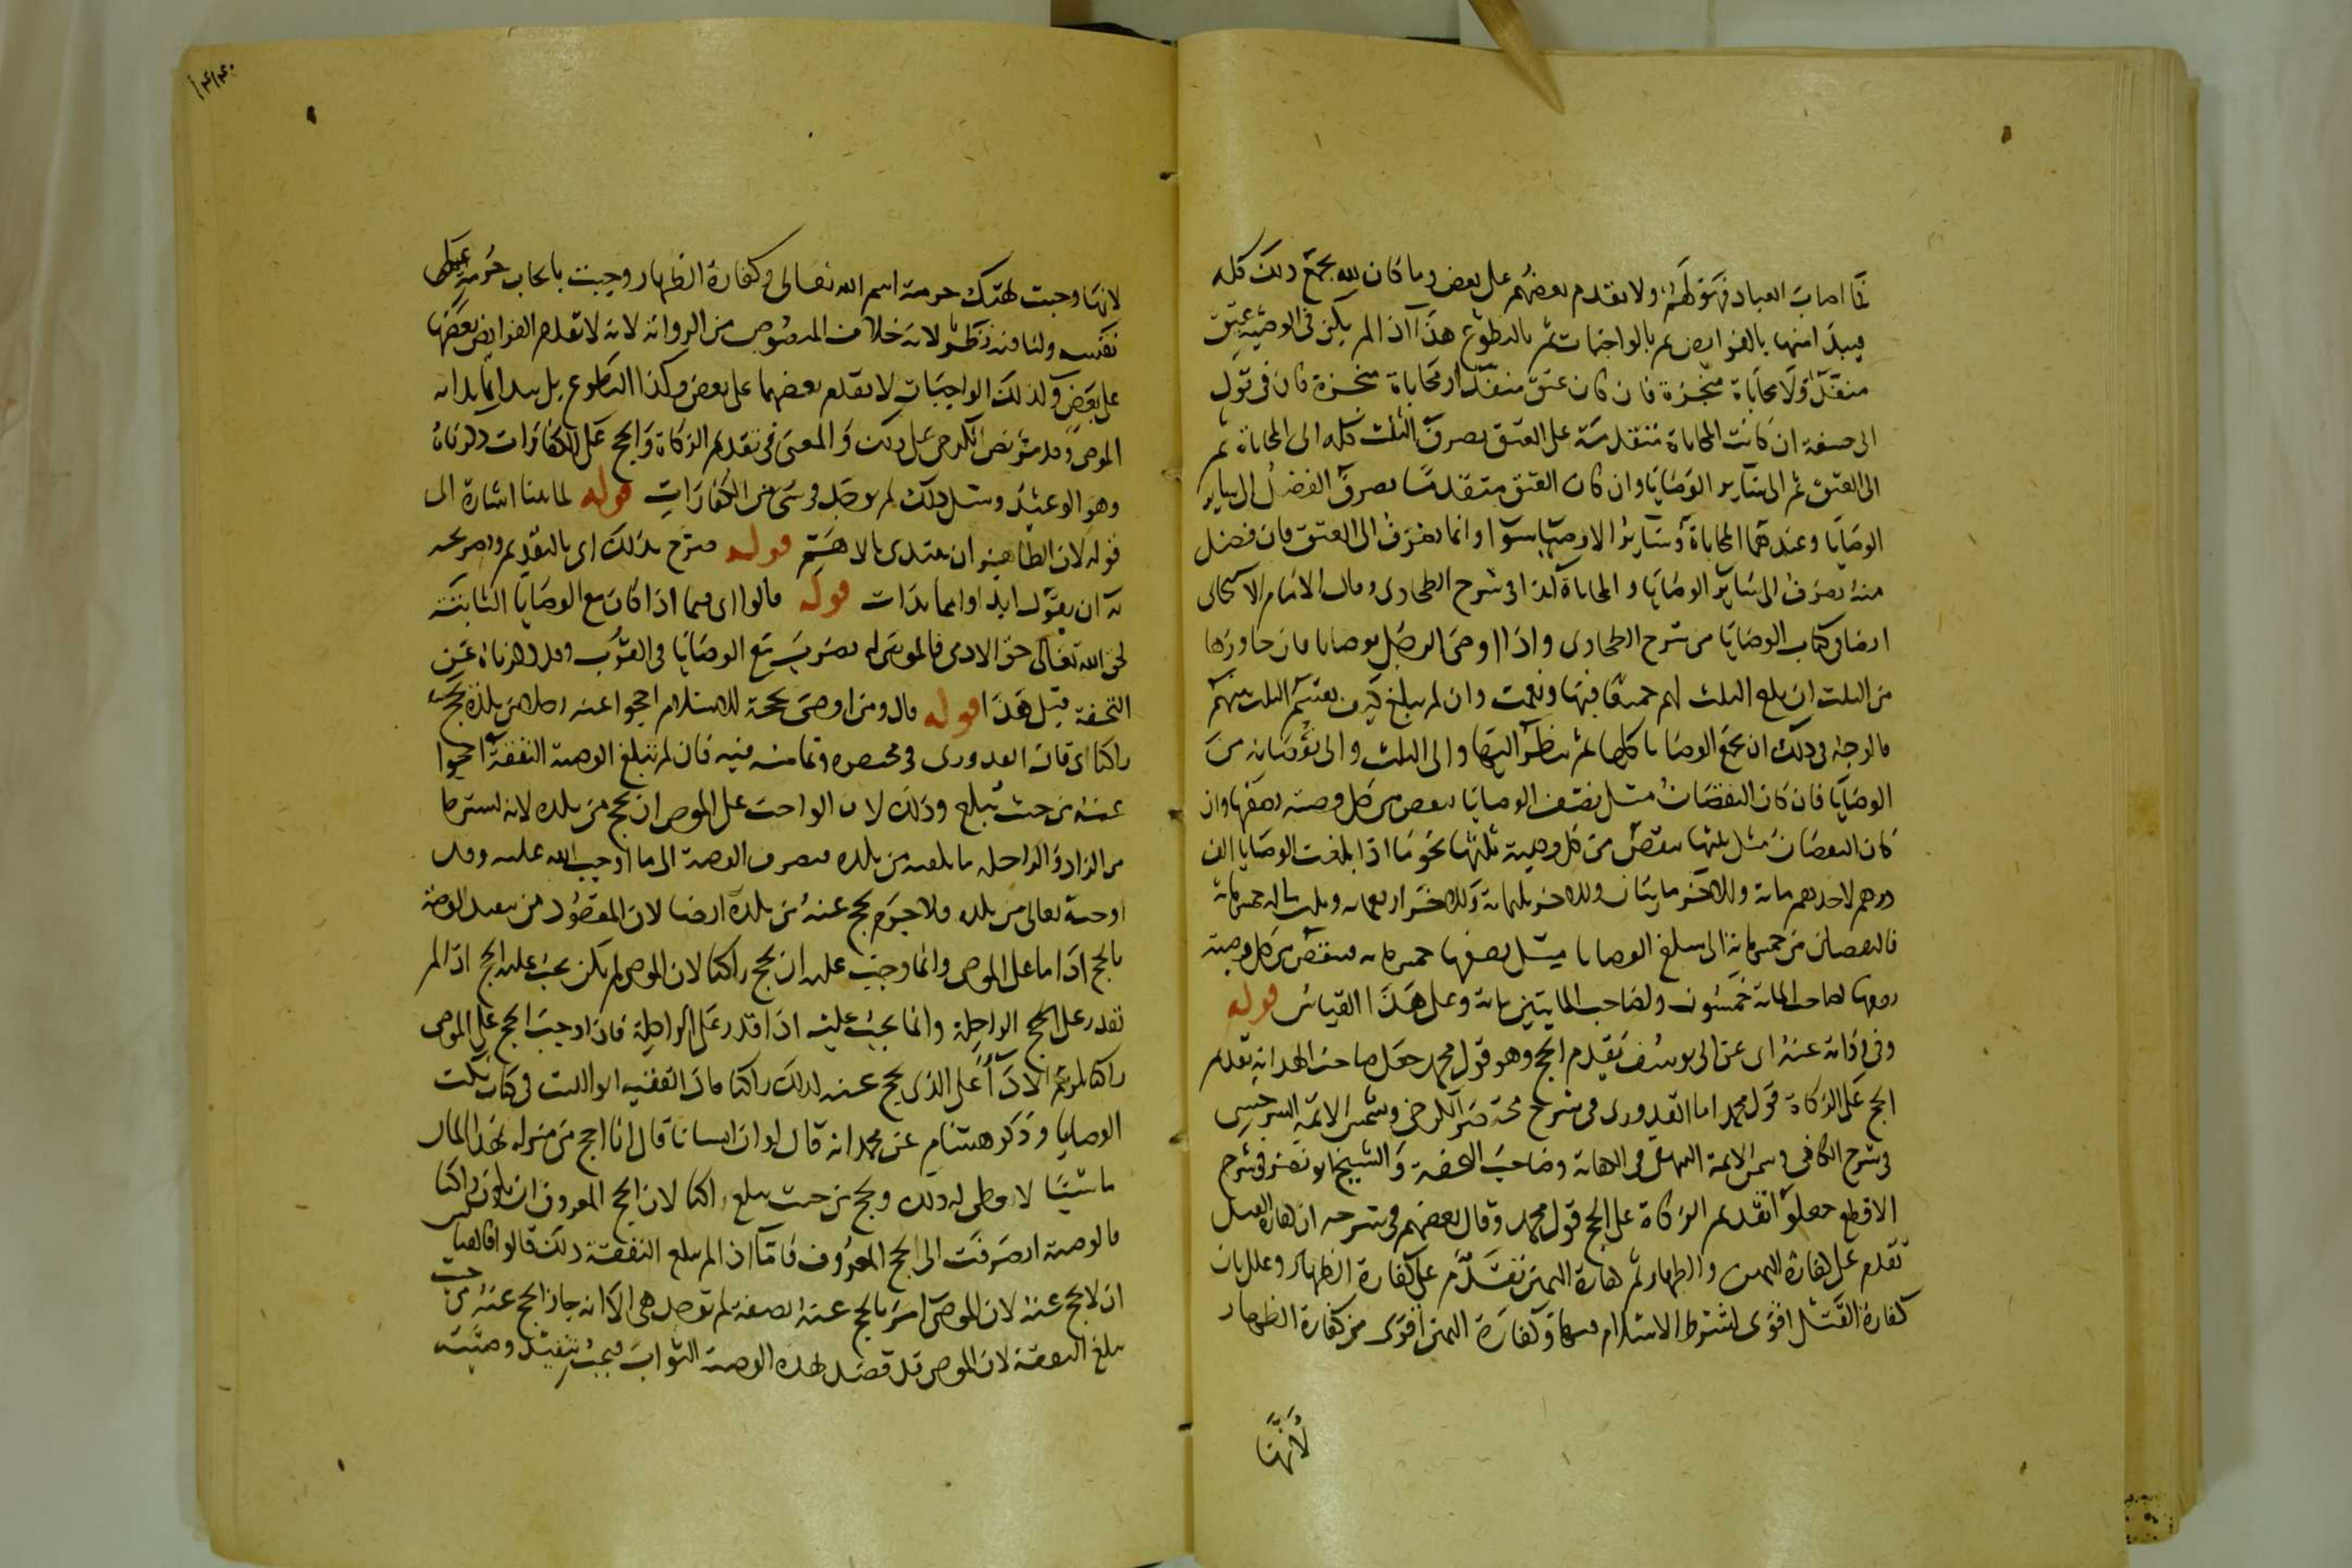 فما اصاب العباد فهو لهم ولا يقدم بعضهم على بعض وما كان لله يجمع ذلك كله
فيبدا منها بالفرايض ثم بالواجبات ثم بالتطوع هذا اذا لم يكن في الوصية عتق
منفذ ولا محاباة منجزة فان كان عتق منفذ او محاباة منجزة كان في قول
ابي حنيفة ان كانت المحاباة متقدمة على العتق يصرف الثلث كله الى المحاباة ثم
الى العتق ثم الى ساير الوصايا وان كان العتق متقدما يصرف الفضل الى ساير
الوصايا وعندهما المحاباة وساير الاوصيا سوا وانما يصرف الى العتق فان فضل
منه يصرف الى ساير الوصايا و المحاباة كذا في شرح الطحاوى وقال الامام الاسبيجابى
ايضا في كتاب الوصايا من شرح الطحاوى واذا اوصى الرجل بوصايا فان جاوزها
من الثلث ان بلغ الثلث لهم جميعا فبها ونعمت وان لم يبلغ كيف يقسم الثلث بينهم
فالوجه في ذلك ان يجمع الوصايا كلها ثم ينظر اليها والى الثلث والى نقصانه من
الوصايا فان كان النقصان مثل نصف الوصايا ينقص من كل وصية نصفها وان
كان النقصان مثل ثلثها ينقص من كل وصية ثلثها نحو ما اذا بلغت الوصايا الف
درهم لاحدهم ماية وللاخر مايتان وللاخر ثلثماية وللاخر اربعماية وثلث ماله خمسماية
فالنقصان من خمسماية الى مبلغ الوصايا مثل نصفها خمسماية فينقص من كل وصية
نصفها لصاحب الماية خمسون ولصاحب المايتين ماية وعلى هذا القياس قوله
وفي رواية عنه اى عن ابى يوسف يقدم الحج وهو قول محمد جعل صاحب الهداية تقدم
الحج على الزكاة قول محمد اما القدورى في شرح مختصر الكرخى وشمس الايمة السرخسى
في شرح الكافى وشمس الايمة البيهقى في الكفاية وصاحب التحفة والشيخ ابو نصر في شرح
الاقطع جعلوا تقديم الزكاة على الحج قول محمد وقال بعضهم في شرحه ان كفارة القتل
تقدم على كفارة اليمين والظهار ثم كفارة اليمين تقدم على كفارة الظهار وعلل بان
كفارة القتل اقوى لشرط الاسلام فيها وكفارة اليمين اقوى من كفارة الظهار
لانها
لانها وجبت لهتك حرمة اسم الله تعالى وكفارة الظهار وجبت بايجاب حرمة على
نفسه ولنا فيه نظر لانه خلاف المنصوص من الرواية لانه لا تقدم الفرايض بعضها
على بعض وكذلك الواجبات لا يقدم بعضها على بعض وكذا التطوع بل يبدا بما بدا به
الموصى وقد مر نص الكرخى على ذلك والمعنى في تقديم الزكاة والحج على الكفارات
وهو الوعيد ومثل ذلك لم يوجد في شى من الكفارات قوله لما بينا اشارة الى
قوله لان الظاهر ان يبتدى بالاهم قوله صرح بذلك اى بالتقديم وتصريحه
به ان يقول ابدا وابما بدات قوله قالوا اى فيما اذا كان مع الوصايا الثابتة
لحق الله تعالى حق الادمى فالموصى له يضرب مع الوصايا في القرب وقد ذكرناه عن
التحفة قبل هذا قوله قال ومن اوصى بحجة الاسلام احجوا عنه رجلا من بلده يحج
راكبا اى قال القدورى في مختصره وتمامه فيه فان لم تبلغ الوصية النفقة احجوا
عنه من حيث تبلغ وذلك لان الواجب على الموصى ان يحج من بلده لانه يشترط
من الزاد والراحلة ما يبلغه من بلده فيصرف الوصية الى ما اوجب الله عليه وقد
اوجبه تعالى من بلده فلا جرم يحج عنه من بلده ايضا لان المقصود من تنفيذ الوصية
بالحج ادا ما على الموصى وانما وجب عليه ان يحج راكبا لان الموصى لم يكن يجب عليه الحج اذا لم
يقدر على الحج الراحلة وانما يجب عليه اذا قدر على الراحلة فاذا وجب الحج على الموصى
راكبا لزم الادا على الذى يحج عنه كذلك راكبا قال الفقيه ابو الليث في كتاب نكت
الوصايا وذكر هشام عن محمد انه قال لو ان انسانا قال انا احج من منزله بهذا المال
ماشيا لا يعطى له ذلك ويحج من حيث يبلغ راكبا لان الحج المعروف ان يكون راكبا
فالوصية انصرفت الى الحج المعروف فاما اذا لم يبلغ النفقة ذلك قالوا فالقياس
ان لا يحج عنه لان الموصى امر بالحج عنه بصفة لم توجد هى الا انه جاز الحج عنه من حيث
يبلغ النفقة لان الموصى قد قصد بهذه الوصية الثواب فيجب تنفيذ وصيته